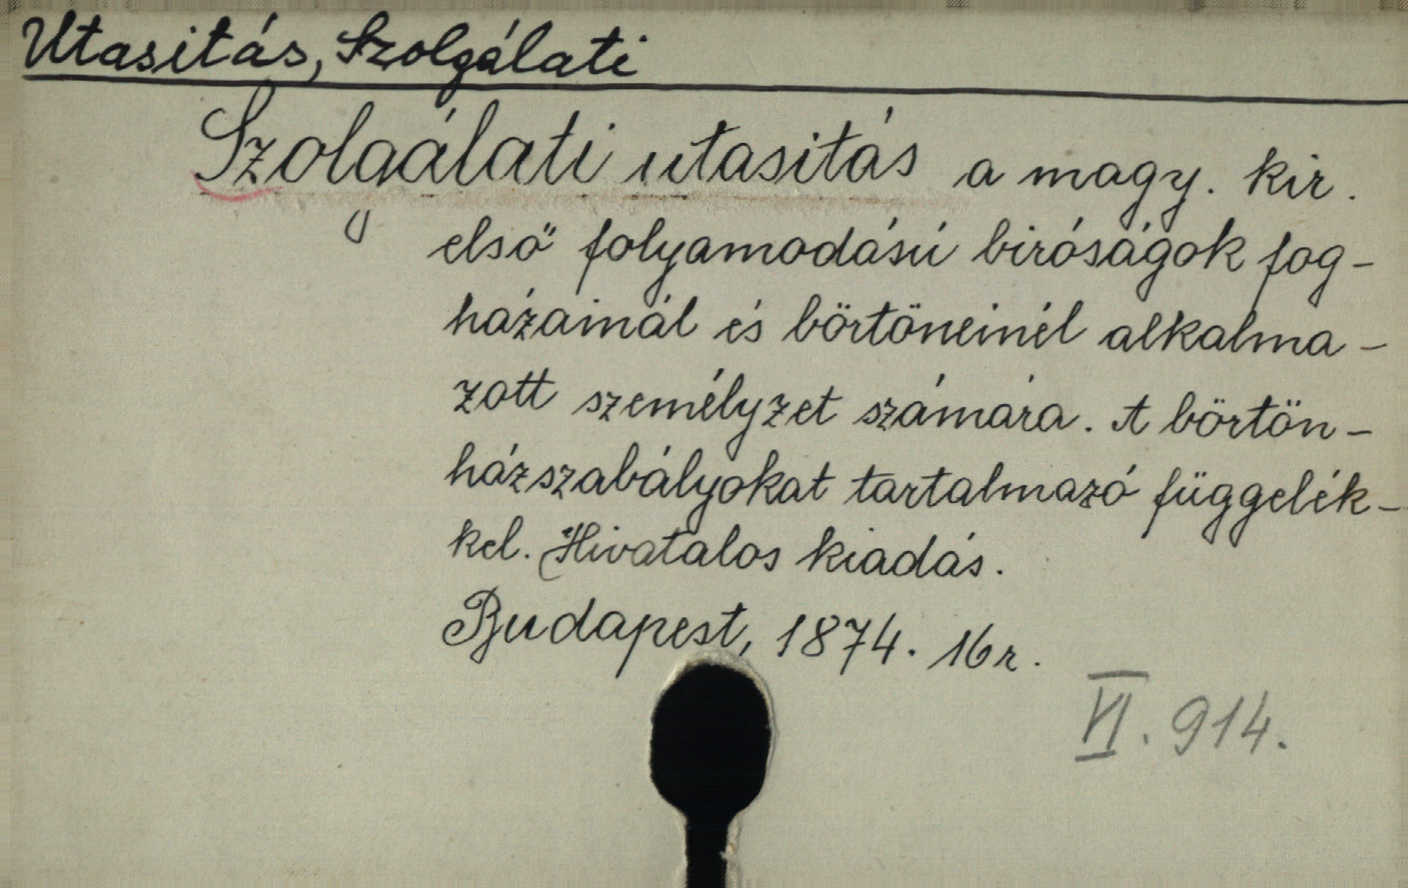 Utasitás, Szolgálati
Szolgálati utasitás a magy. kir.
első folyamodású biróságok fog-
házainál és börtöneinél alkalma-
zott személyzet számára. A börtön-
házszabályokat tartalmazó függelék-
kel. (Hivatalos kiadás.
Budapest, 1874. 16r.
VI. 914.